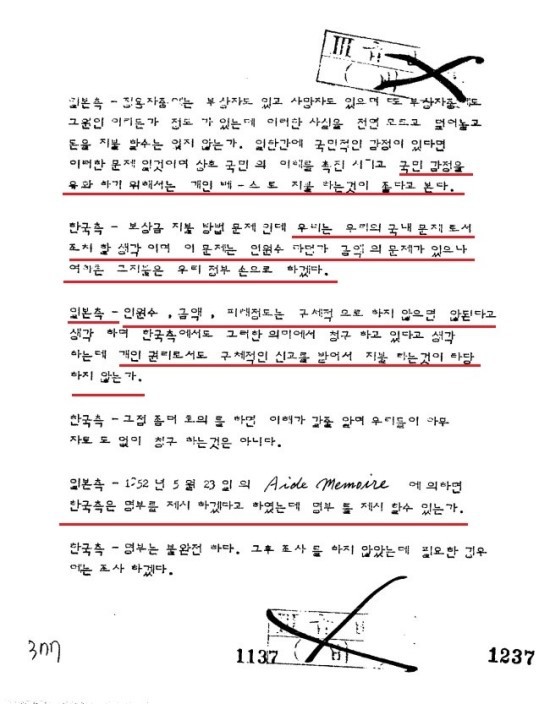 일본측 - 징용자중에는 부상자도 있고 사망자도 있으며 또 부상자중에도
그원인 이라든가 정도 가 있는데 이러한 사실을 전연 모르고 덮어놓고
돈을 지불 할수는 없지 않는가. 일한간에 국민적인 감정이 있다면
이러한 문제 일것이며 상호 국민 의 이해를 촉진 시키고 국민 감정을
유화 하기 위해서는 개인 베-스로 지불 하는것이 좋다고 본다.
한국측 - 보상금 지불 방법 문제 인데 우리는 우리의 국내 문제 로서
조치 할 생각 이며 이 문제는 인원수 라던가 금액 의 문제가 있으나
여하튼 그지불은 우리 정부 손으로 하겠다.
일본측 - 인원수 , 금액 , 피해정도는 구체적 으로 하지 않으면 않된다고
생각 하며 한국측에서도 그러한 의미에서 청구 하고 있다고 생각
하는데 개인 권리로서도 구체적인 신고를 받어서 지불 하는것이 타당
하지 않는가.
한국측 - 그점 좀더 토의 를 하면 이해가 갈줄 알며 우리들이 아무
자료 도 없이 청구 하는것은 아니다.
일본측 - 1952 년 5 월 23 일의 Aide Memoire 에 의하면
한국측은 명부를 제시 하겠다고 하였는데 명부 를 제시 할수 있는가.
한국측 - 명부는 불완전 하다. 그후 조사 를 하지 않았는데 필요한 경우
에는 조사 하겠다.
1137
1237